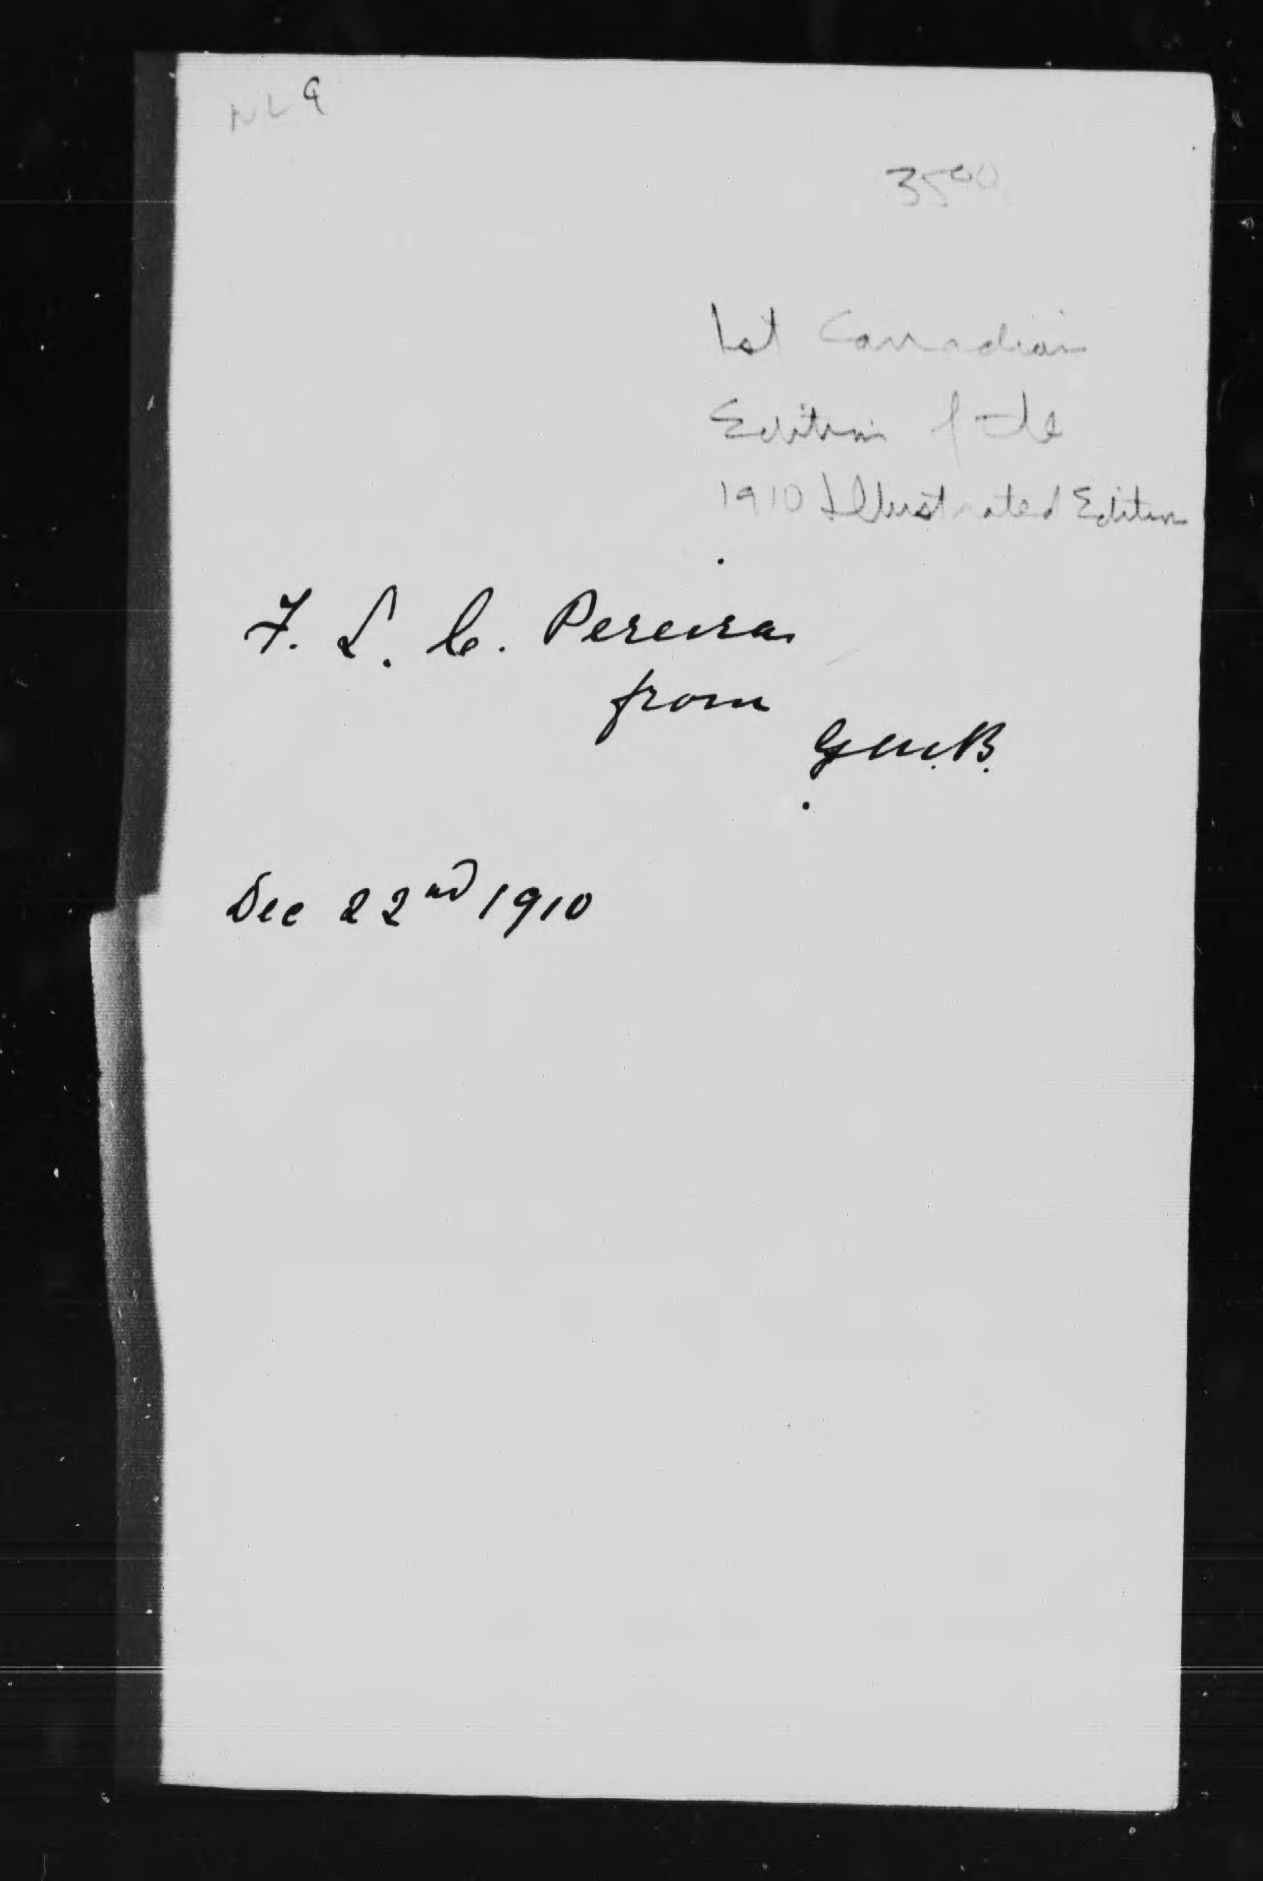 NL9
3500
1st Canadian
Edition of the
1910 Illustrated Edition
F. L. C. Pereira
from
G.M.B.
Dec 22nd 1910